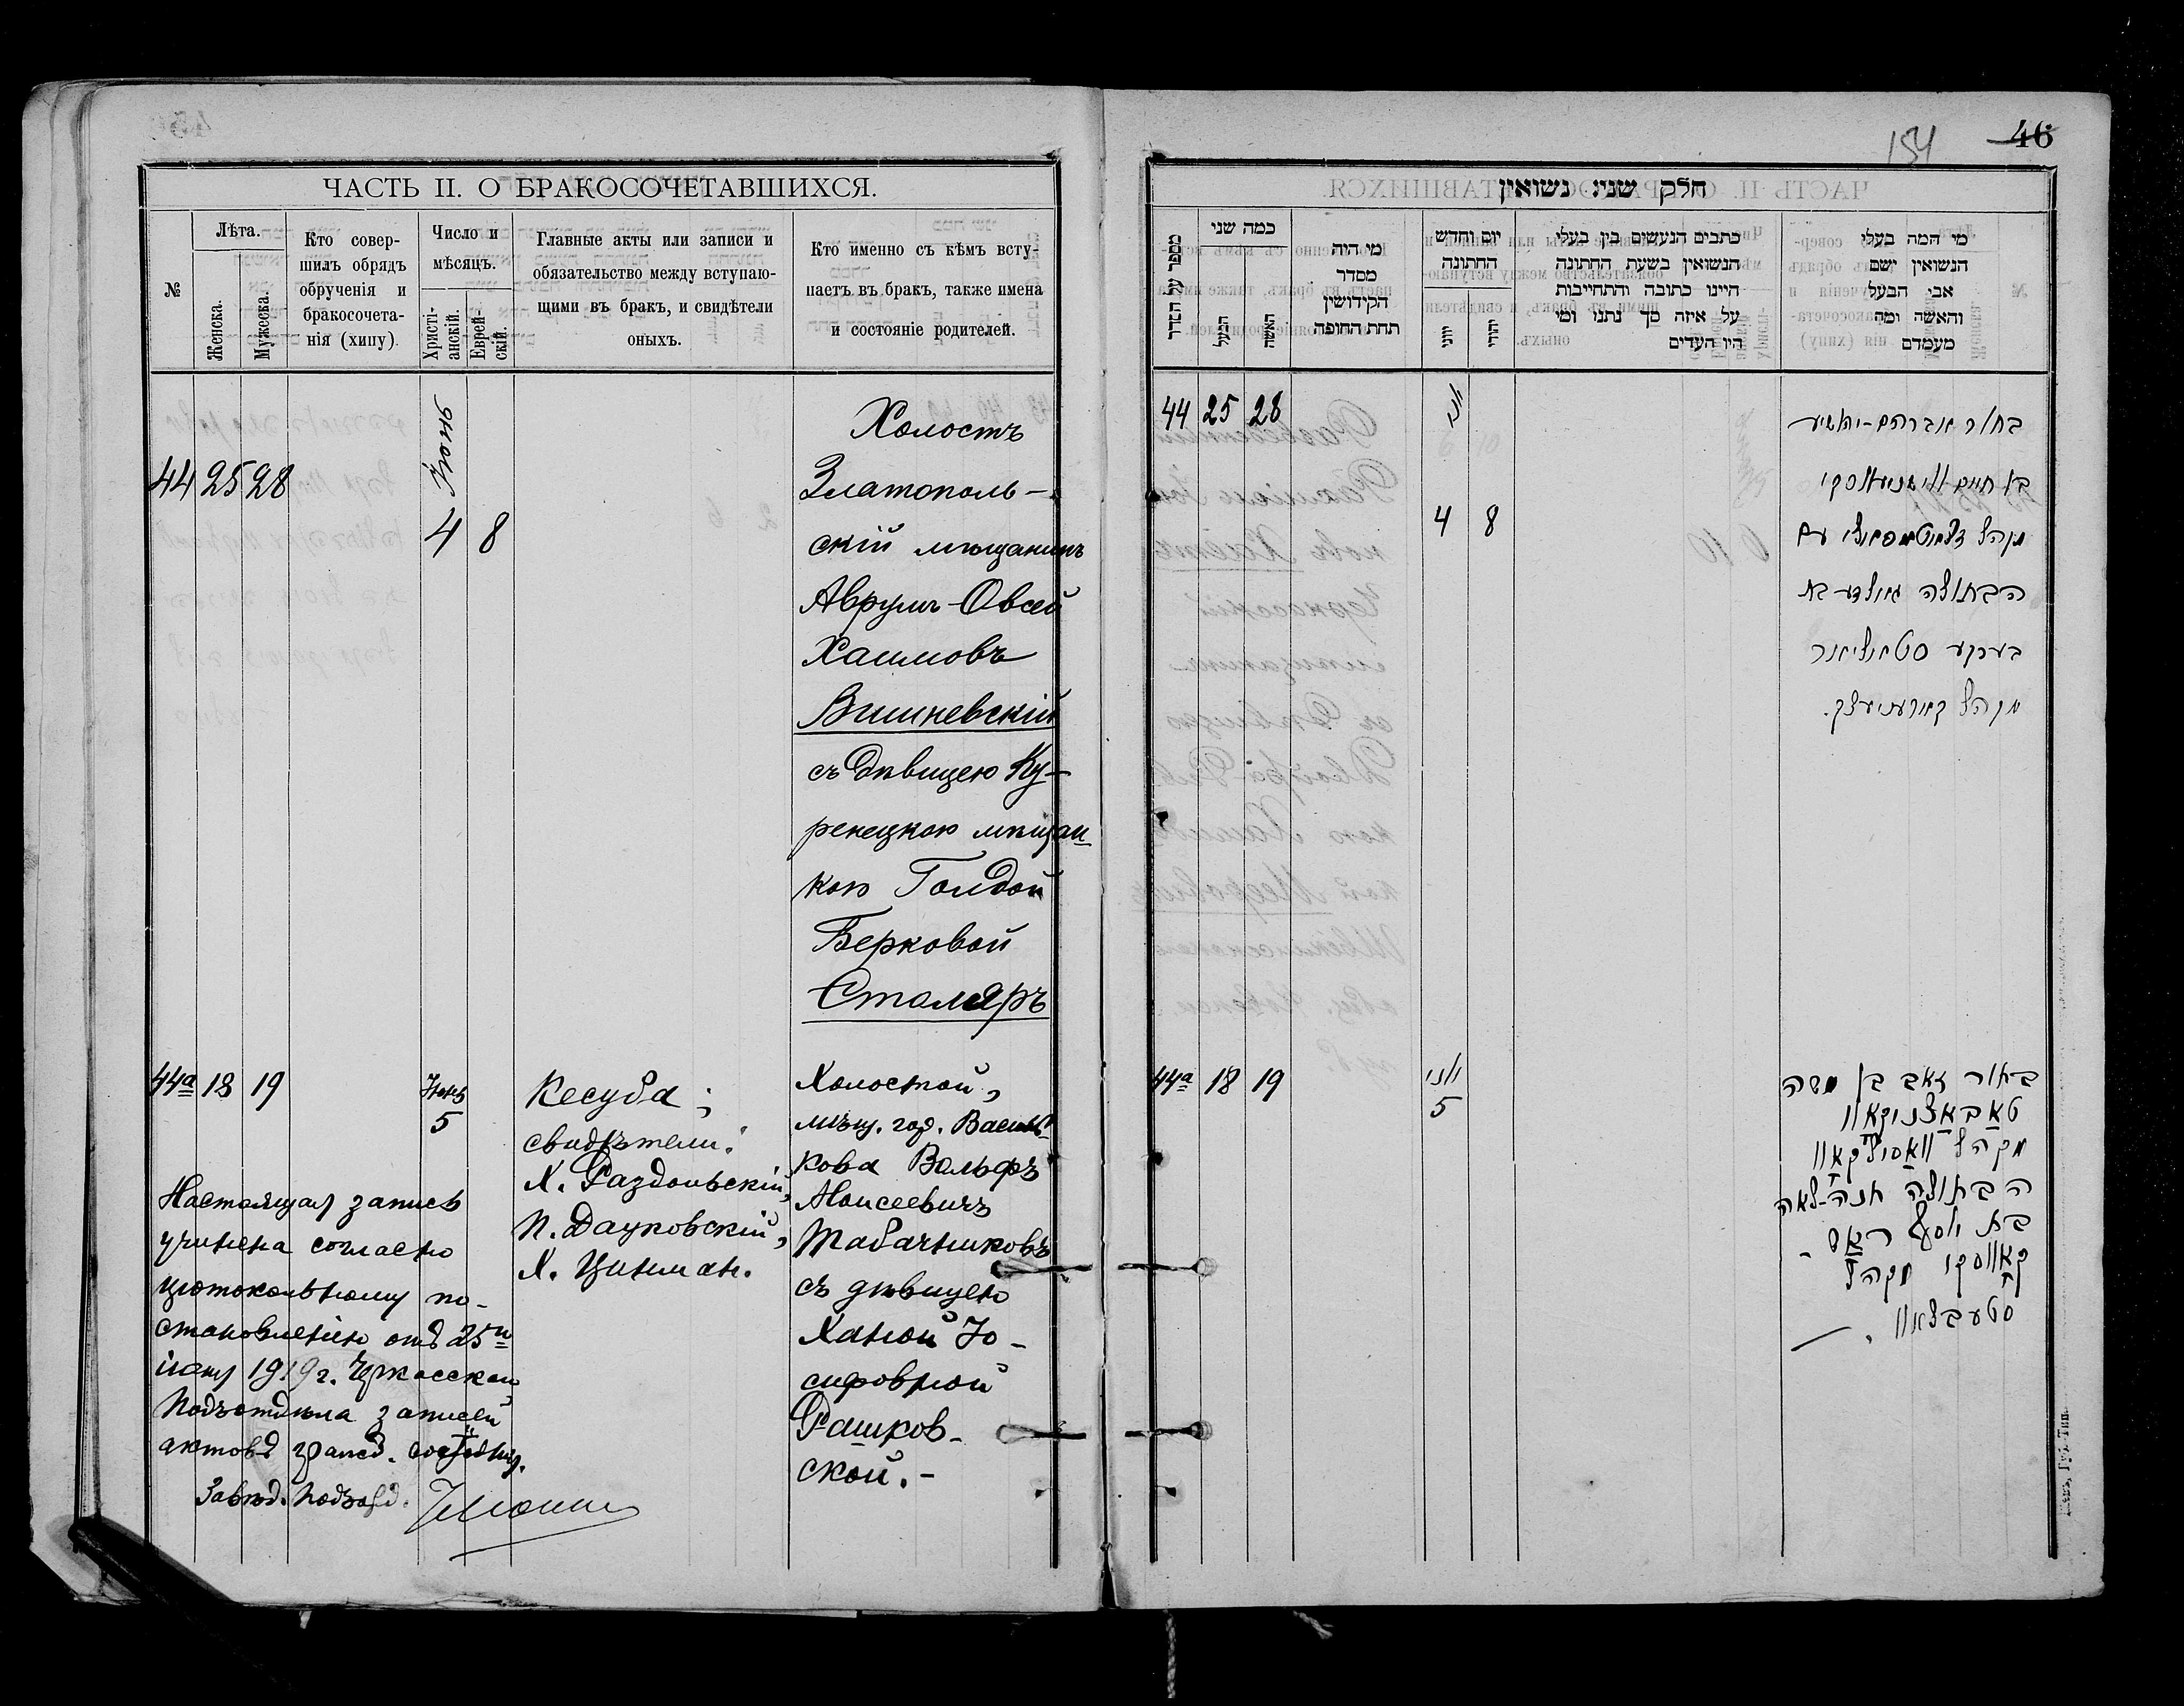 ЧАСТЬ II. О БРАКОСОЧЕТАВШИХСЯ.
№
Лѣта.
Женска.
Мужеска.
Кто совер-
шилъ обрядъ
обрученія и
бракосочета-
нія (хипу)
Число и
мѣсяцъ.
Христі-
анскій.
Еврей-
скій.
Главные акты или записи и
обязательство между вступаю-
щими въ бракъ, и свидѣтели
оныхъ.
Кто именно съ кѣмъ всту-
паетъ въ бракъ, также имена
и состояніе родителей.
44 25 28
Іюнь
4 8
Холостъ
Златополь-
скій мѣщанинъ
Аврумъ-Овсей
Хаимовъ
Вишневскій
съ дѣвицею Ку-
ренецкою мѣщан
кою Голдой
Берковой
Столяръ
44а 18 19
Іюнь
5
Кесуба;
свидѣтели:
Х. Раздольскій,
П. Дацковскій,
Х. Цинман.
Холостой,
мѣщ. гор. Василь
кова Вольфъ
Моисеевичъ
Табачниковъ
съ дѣвицею
Ханой Іо-
сифовной
Рашков-
ской.-
Настоящая запись
учинена согласно
протокольному по-
становленію отъ 25го
1919 г. Черкасскаго
Подъотдѣла записей
актовъ гражд. состоянія.
Завѣд. Подъотд.
154 46
חלק שני: נשואין
מספר על הסדר
כמה שני
הבעל
האשה
מי היה
מסדר
הקידושין
תחת החופה
יום וחדש
החתונה
יוני
יהודי
כתבים הנעשים בין בעלי
הנשואין בשעת החתונה
היינו כתובה והתחייבות
על איזה סך נתנו ומי
היו העדים
מי המה בעלי
הנשואין ושם
אבי הבעל
והאשה ומה
מעמדם
44 25 28
יוני
4 8
בחור אברהם-יהושיע
בן חיים ווישניעווסקי
מקהל זלאטאפאלי עם
הבתולה גאלדע בת
בערקע סטאליאר
מקהל קורעניעצק.
44а 18 19
יוני
5
בחור זאב בן משה
טאבאצניקאוו
מקהל וואסילקאוו
הבתולה חנה-לאה
בת יוסף ראש-
קאווסקי מקהל